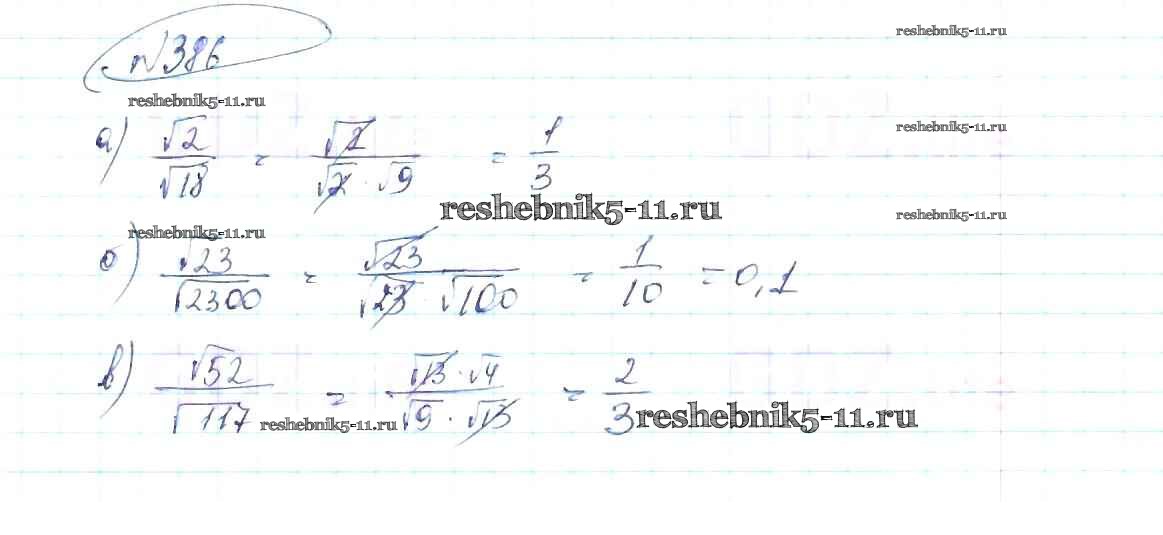 reshebnik5-11.ru
№386
reshebnik5-11.ru
reshebnik5-11.ru
а) √2/√18 = √2/(√2 · √9) = 1/3
reshebnik5-11.ru
reshebnik5-11.ru
reshebnik5-11.ru
б) √23/√2300 = √23/(√23 · √100) = 1/10 = 0,1
в) √52/√117 = (√13 · √4)/(√9 · √13) = 2/3
reshebnik5-11.ru
reshebnik5-11.ru